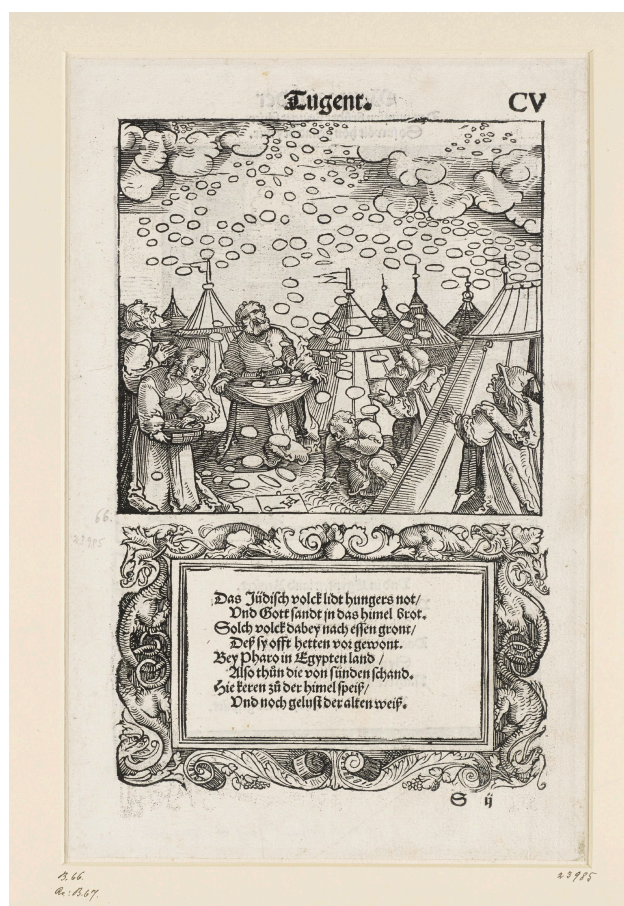 Tugent. CV
Das Jüdisch volck lidt hungers not/
Vnd Gott sandt jn das himel brot.
Solch volck dabey nach essen gront/
Deß sy offt hetten vor gewont.
Bey Pharo in Egypten land /
Also thůn die von sünden schand.
Hie keren zů der himel speiß/
Vnd noch gelust der alten weiß.
S ij
66.
23985
B.66.
B.67.
23985